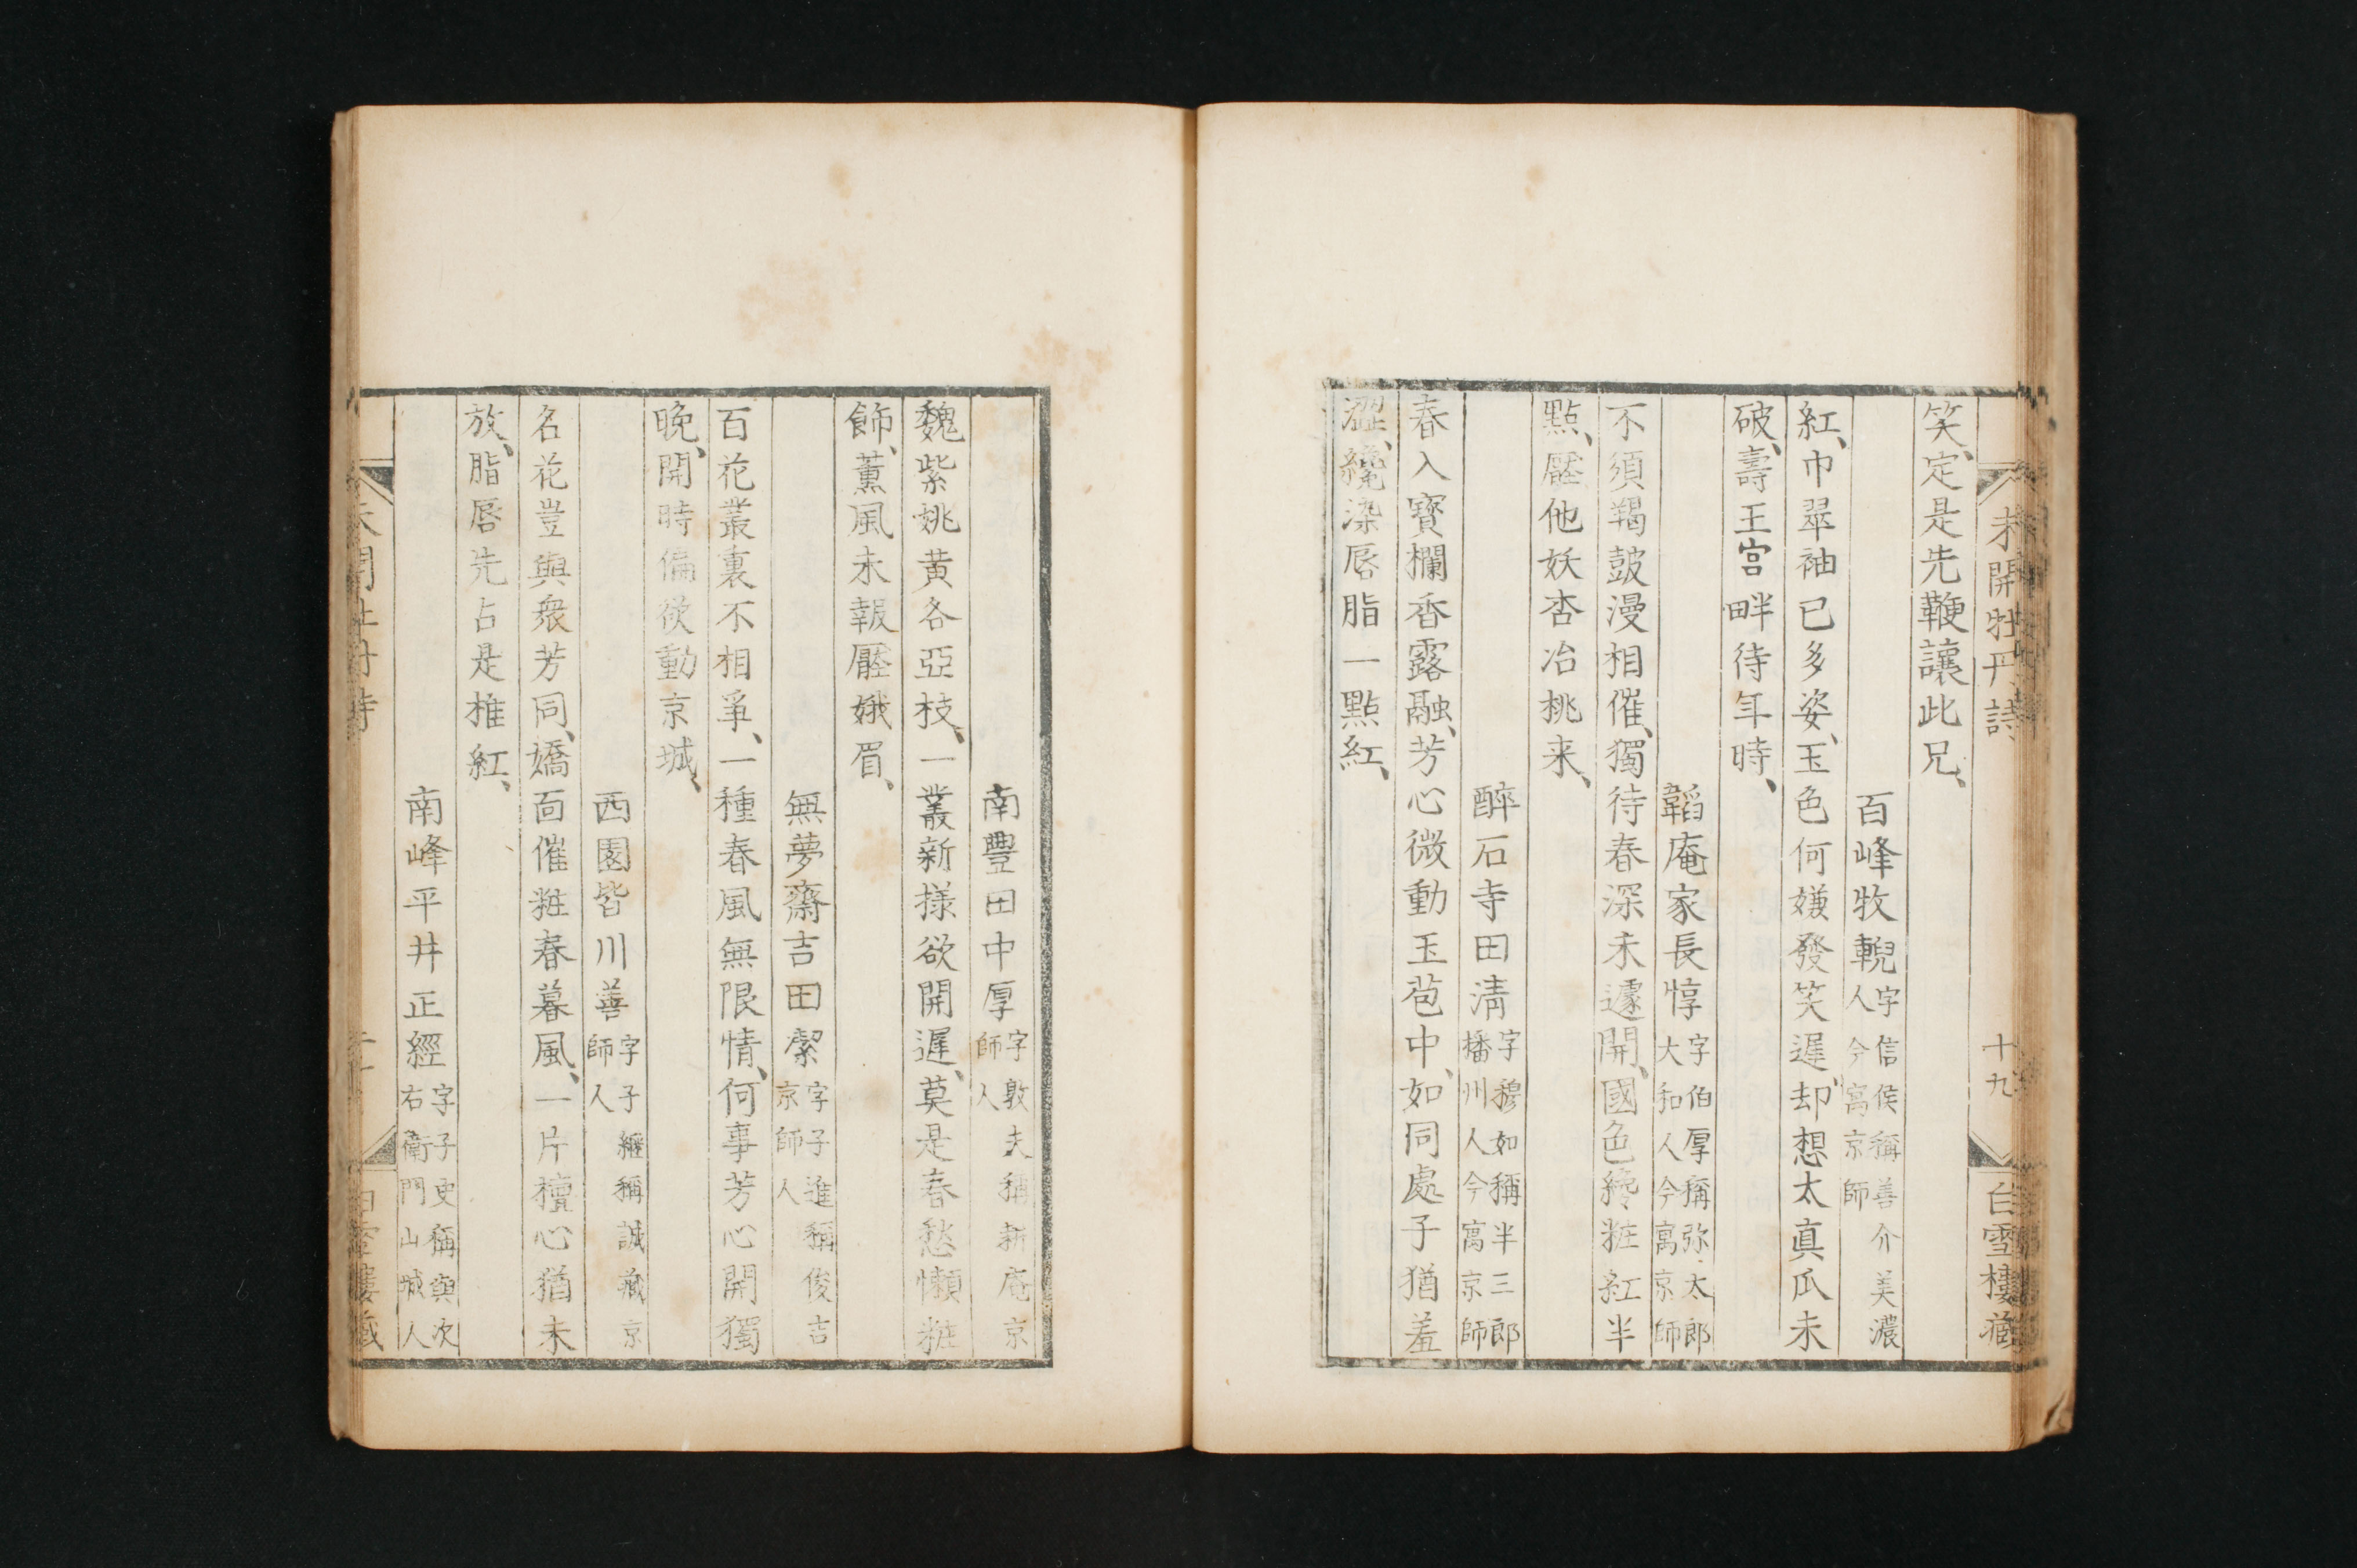 未開牡丹詩 十九 白雪樓藏
笑、定是先鞭讓此兄、
百峰牧輗字信侯稱善介美濃人今寓京師
紅巾翠袖已多姿、玉色何嫌發笑遲、却想太真瓜未
破、壽王宮畔待年時、
韜庵家長惇字伯厚稱弥太郎大和人今寓京師
不須羯鼓漫相催、獨待春深未遽開、國色纔粧紅半
點、壓他妖杏冶桃来、
醉石寺田淸字穆如稱半三郎播州人今寓京師
春入寶欄香露融、芳心微動玉苞中、如同處子猶羞
澀、纔染唇脂一點紅、
南豐田中厚字敦夫稱新庵京師人
魏紫姚黃各亞枝、一叢新樣欲開遲、莫是春愁懶粧
飾、薰風未報壓娥眉、
無夢齋吉田潔字子進稱俊吉京師人
百花叢裏不相爭、一種春風無限情、何事芳心開獨
晚、開時偏欲動京城、
西園皆川善字子繼稱誠藏京師人
名花豈與衆芳同、嬌面催粧春暮風、一片檀心猶未
放、脂唇先占是椎紅、
南峰平井正經字子史稱與次右衛門山城人